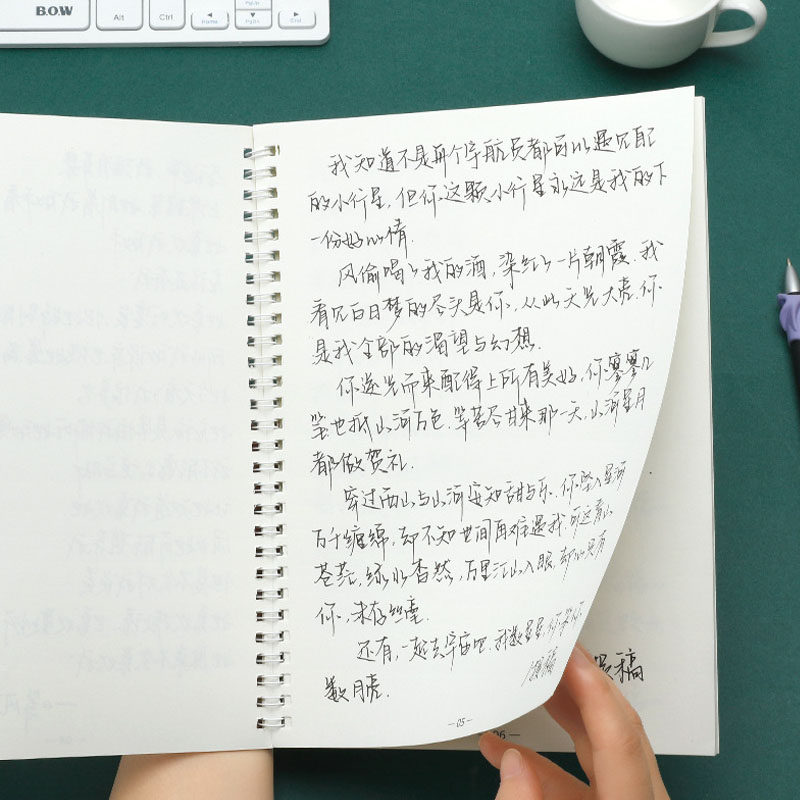 B.O.W
Alt
Ctrl
Home
PgUp
PgDn
End
我知道不是每个宇航员都可以遇见配
的小行星,但你这颗小行星永远是我的下
一份好心情.
风偷喝了我的酒,染红了一片朝霞.我
看见白日梦的尽头是你,从此天光大亮.你
是我全部的渴望与幻想.
你逆光而来配得上所有美好,你寥寥几
笔也抵山河万色.等苦尽甘来那一天,山河星月
都做贺礼.
穿过西山与山河安知甜与乐.你坠入星河
万千缠绵,却不知世间再难遇我
苍茫,绿水杳然,万里江山入眼,却
你,未存丝毫.
还有,一起去宇宙吧.我数星星,你
数月亮.
稿
—05—
06—